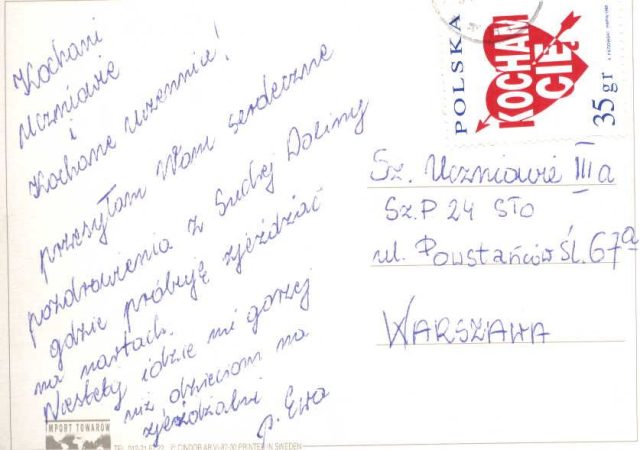 Kochani
Uczniowie
i
Kochane Uczennice!
przesyłam Wam serdeczne
pozdrowienia z Suchej Doliny
gdzie próbuję zjeżdżać
na nartach.
Niestety idzie mi gorzej
niż dzieciom na
zjeżdżalni
p. Ewa
POLSKA
KOCHAM
CIĘ
35 gr
Sz. Uczniowie III a
Sz.P 24 STO
ul. Powstańców Śl. 67a
WARSZAWA
IMPORT TOWARÓW
PRINTED IN SWEDEN